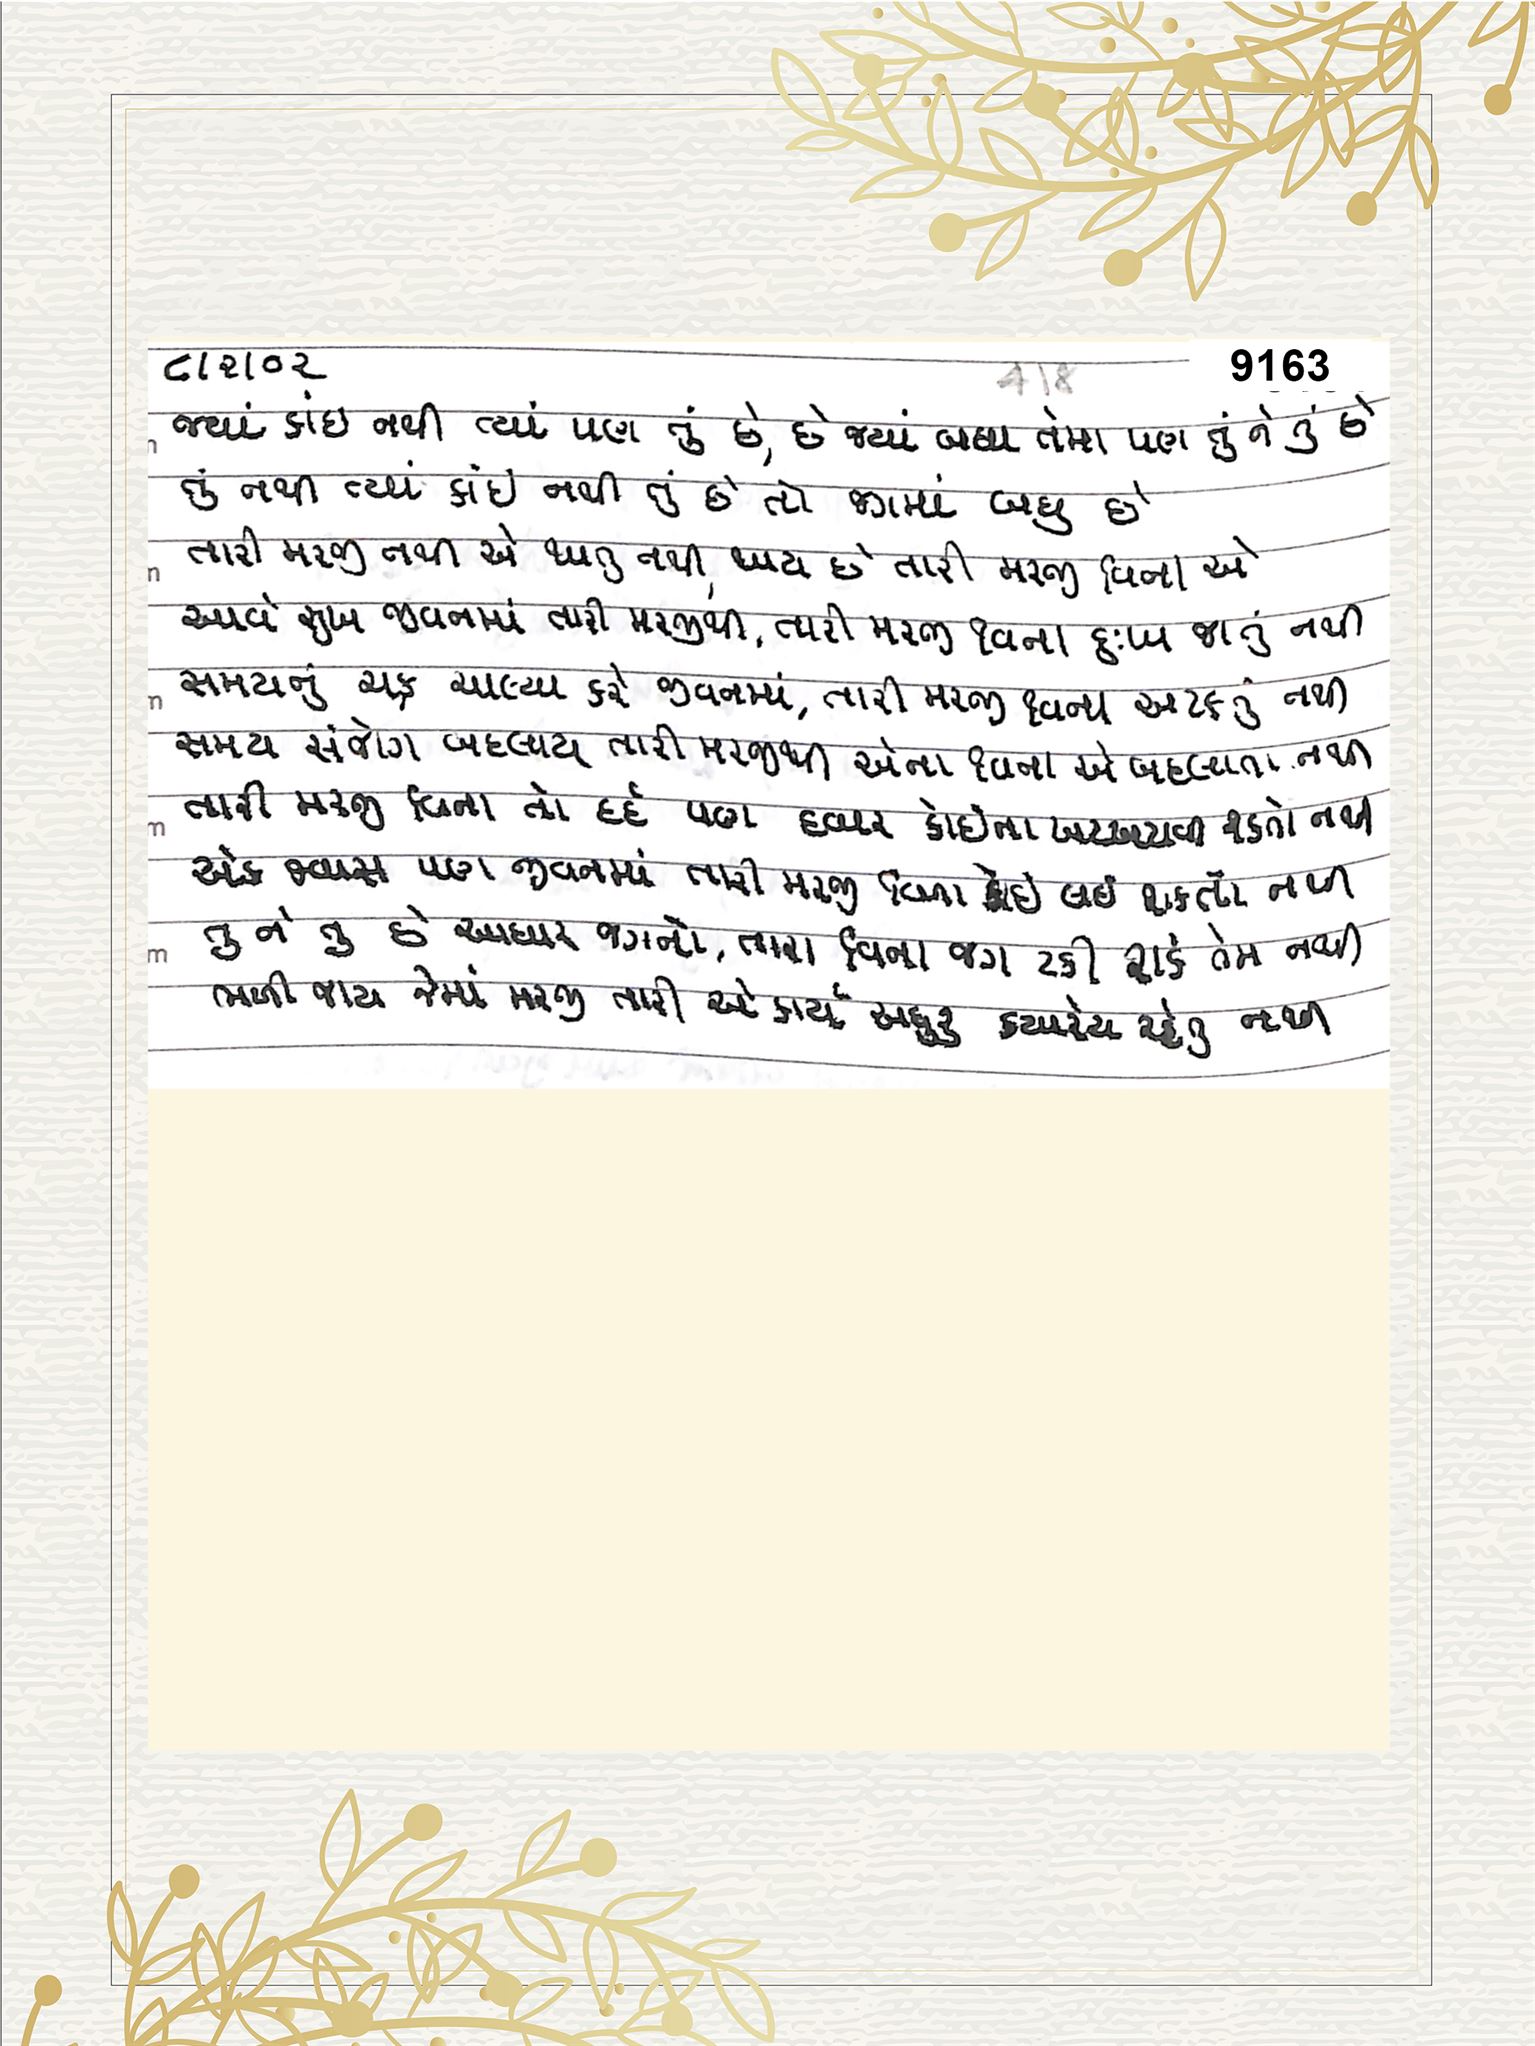 ૮/૨/૦૨
9163
જ્યાં કાંઇ નથી ત્યાં પણ તું છે, છે જ્યાં બધા તેમા પણ તું ને તું છે
તું નથી ત્યાં કાંઇ નથી તું છે તો જગમાં બધુ છે
તારી મરજી નથી એ થાતુ નથી, થાય છે તારી મરજી વિના એ
આવે સુખ જીવનમાં તારી મરજીથી, તારી મરજી વિના દુઃખ જાતું નથી
સમયનું ચક્ર ચાલ્યા કરે જીવનમાં, તારી મરજી વિના અટકતું નથી
સમય સંજોગ બદલાય તારી મરજીથી એના વિના એ બદલાતા નથી
તારી મરજી વિના તો દર્દ પણ દ્વાર કોઈના ખટખટાવી શકતો નથી
એક શ્વાસ પણ જીવનમાં તારી મરજી વિના કોઈ લઈ શકતો નથી
તુ ને તુ છે આધાર જગનો, તારા વિના જગ ટકી શકે તેમ નથી
ભળી જાય જેમાં મરજી તારી એ કાર્ય અધુરુ ક્યારેય રહેતુ નથી